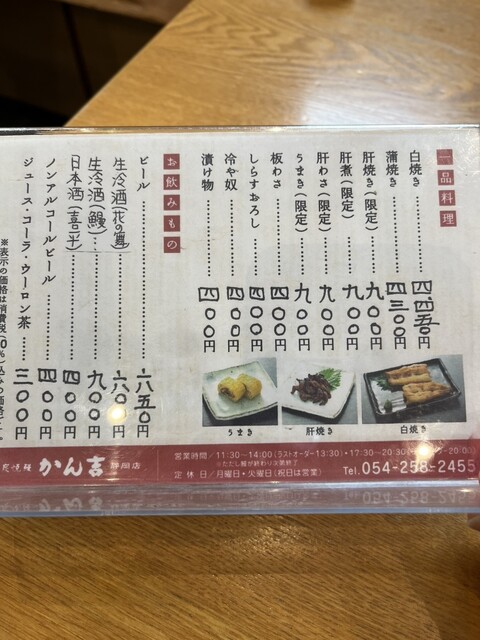 一品料理
白焼き……………四、四五〇円
蒲焼き……………四、三〇〇円
肝焼き(限定)……九〇〇円
肝煮(限定)………九〇〇円
肝わさ(限定)……九〇〇円
うまき(限定)……九〇〇円
板わさ……………四〇〇円
しらすおろし……四〇〇円
冷や奴……………四〇〇円
漬け物……………四〇〇円
お飲みもの
ビール……………六五〇円
生冷酒(花の舞)……六〇〇円
生冷酒(鰻)……九〇〇円
日本酒(喜平)……四〇〇円
ノンアルコールビール……四〇〇円
ジュース・コーラ・ウーロン茶……三〇〇円
※表示の価格は消費税
うまき
肝焼き
白焼き
炭焼鰻 かん吉 静岡店
営業時間/11:30~14:00(ラストオーダー13:30)・17:30~20:30
※ただし鰻が終わり次第終了
定休日/月曜日・火曜日(祝日は営業)
Tel.054-258-2455